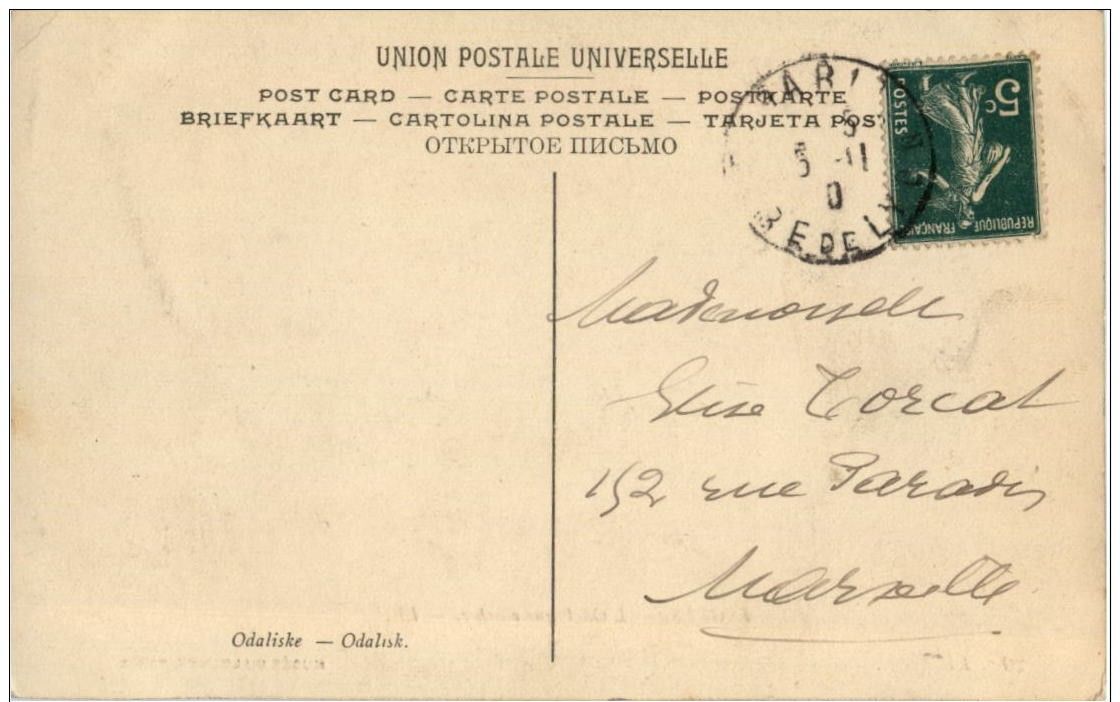 UNION POSTALE UNIVERSELLE
POST CARD — CARTE POSTALE — POSTKARTE
BRIEFKAART — CARTOLINA POSTALE — TARJETA POST
ОТКРЫТОЕ ПИСЬМО
5c
POSTES
REPUBLIQUE FRANÇAISE
RE DE LY
Mademoiselle
Elise Torcat
152 rue Paradis
Marseille
Odaliske — Odalisk.